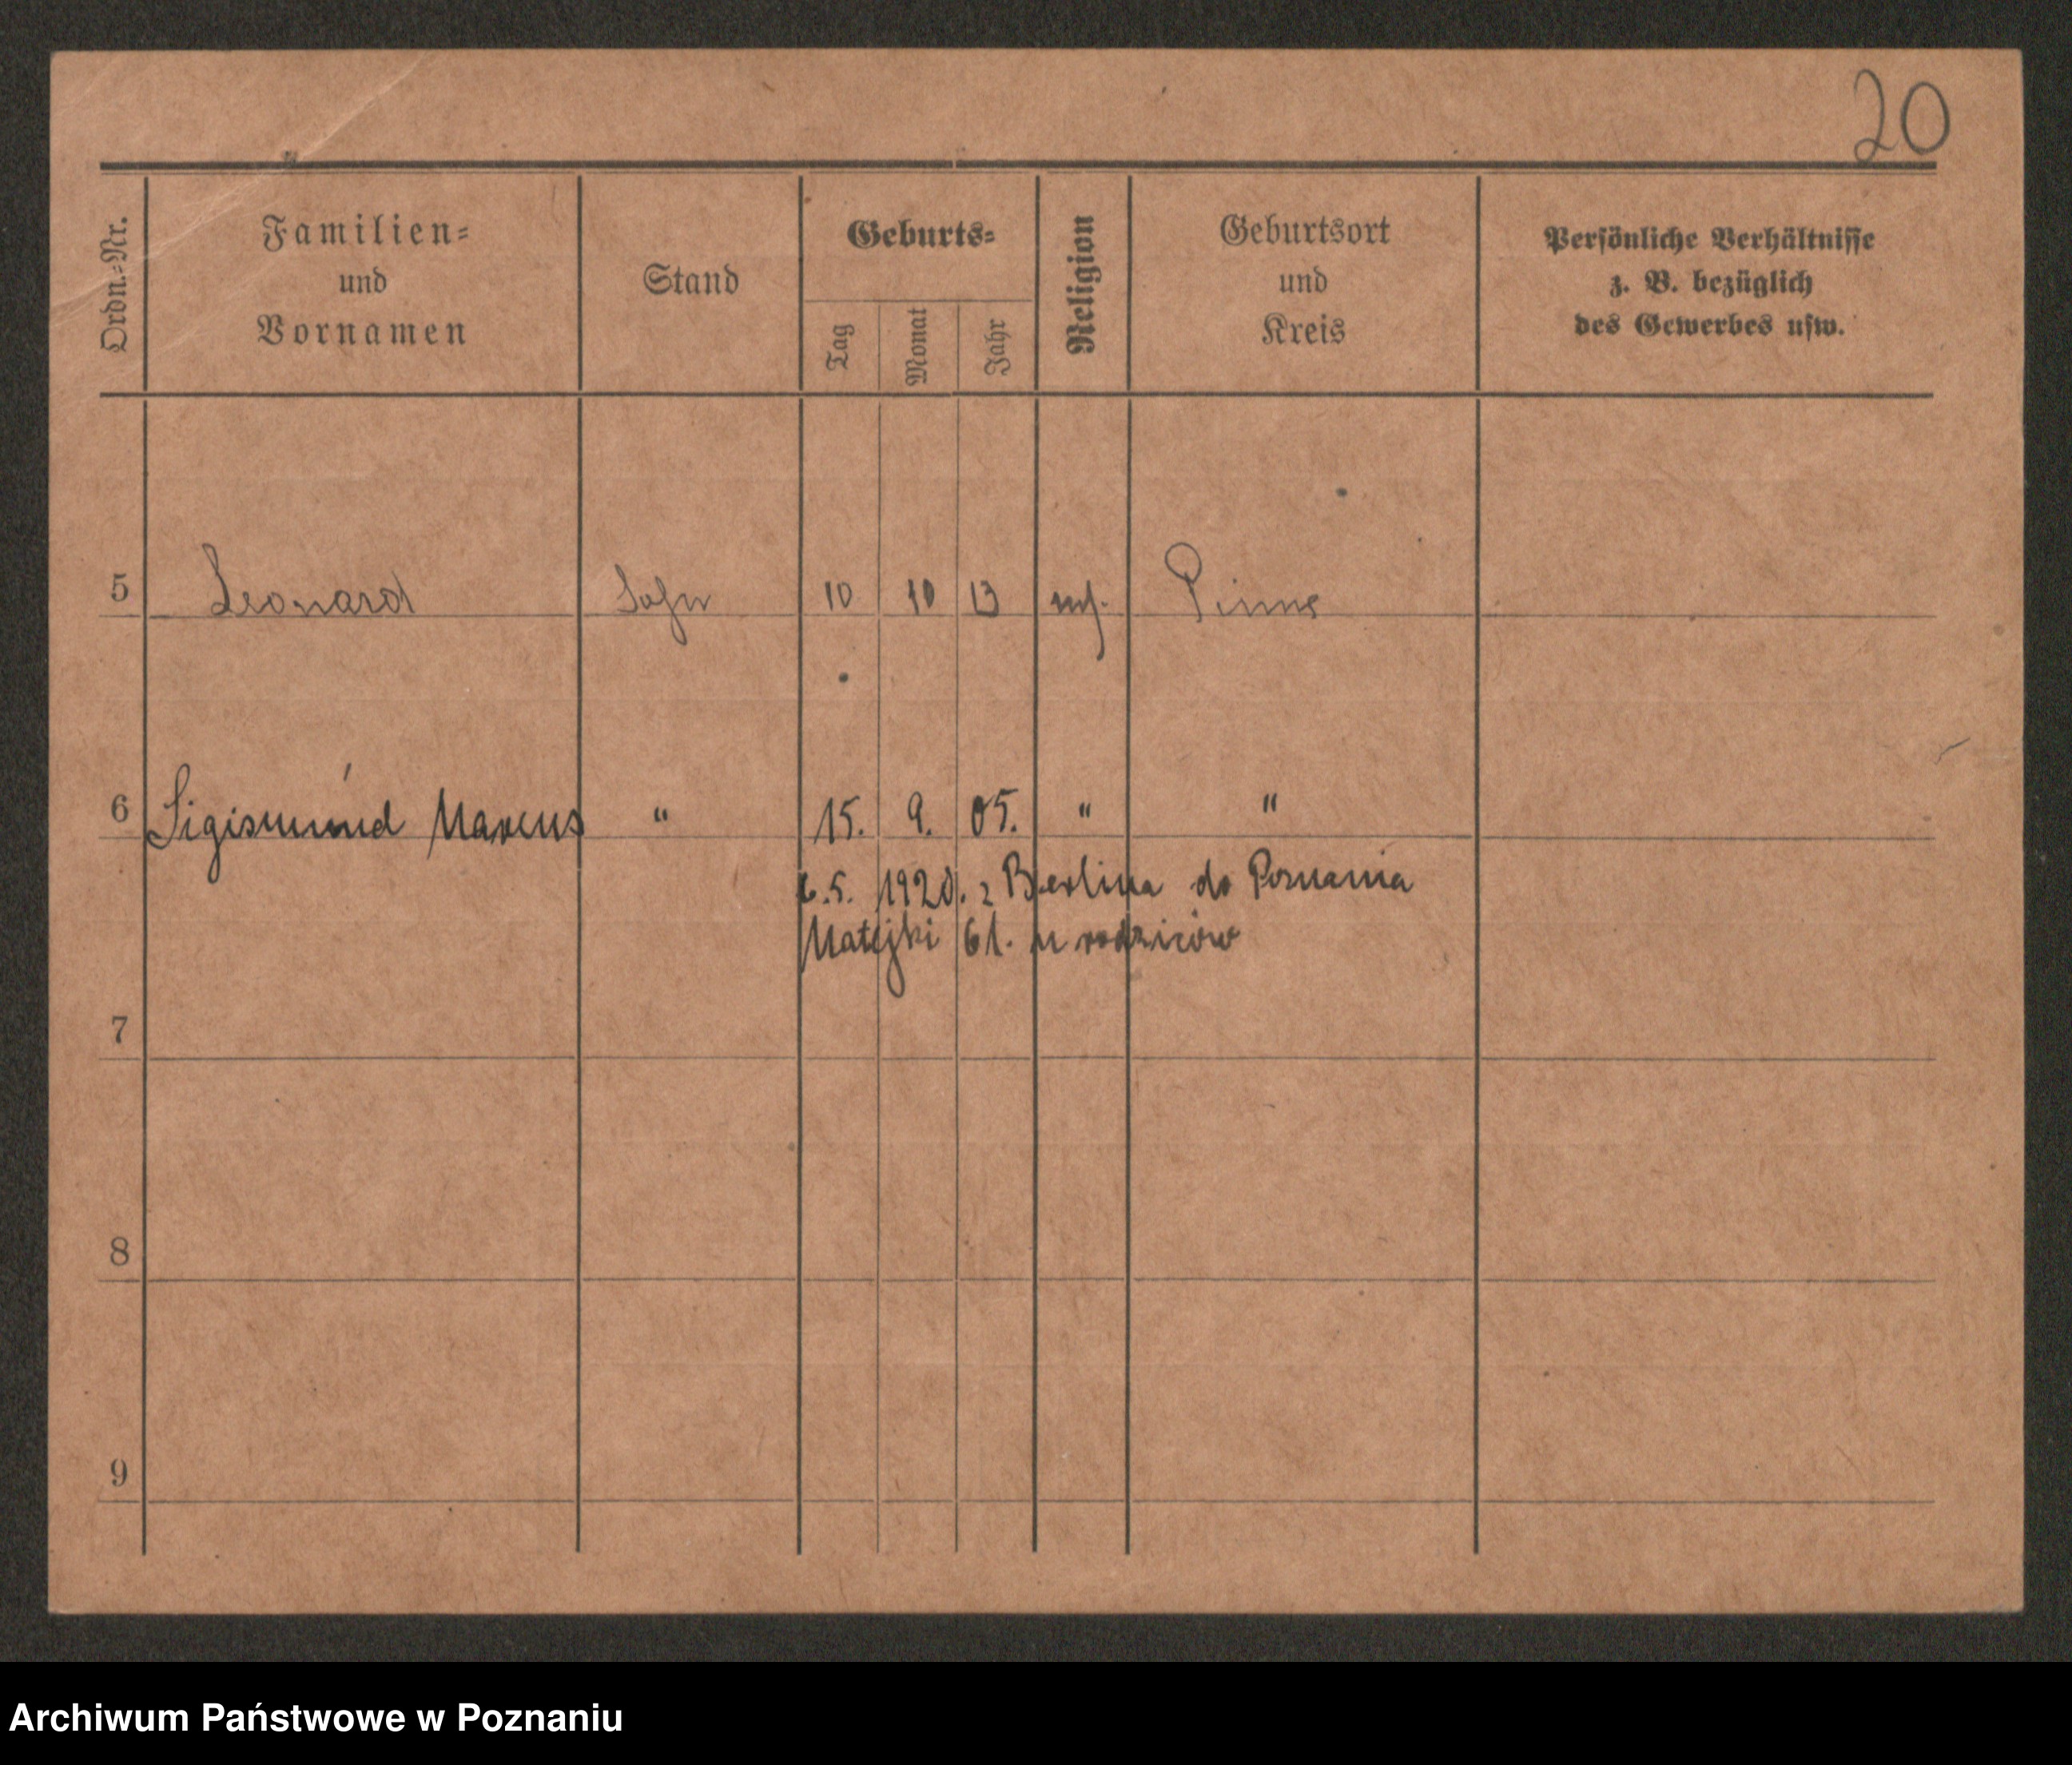 20
Ordn.-Nr.
Familien-
und
Vornamen
Stand
Geburts-
Tag
Monat
Jahr
Religion
Geburtsort
und
Kreis
Persönliche Verhältnisse
z. B. bezüglich
des Gewerbes usw.
5 Leonard Sohn 10 10 13 Pinne
6 Sigismund Marcus " 15. 9. 05. " "
6.5. 1920. z Berlina do Poznania
Matejki 61. u rodziców
7
8
9
Archiwum Państwowe w Poznaniu